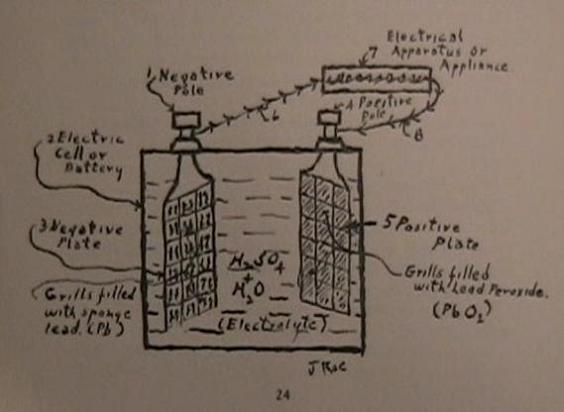 Electrical
7 Apparatus or
Appliance.
1 Negative
Pole
4 Positive
Pole
6
8
2 Electric
Cell or
Battery
3 Negative
Plate
5 Positive
Plate
H2SO4
+
H2O
(Electrolyte)
Grills filled
with sponge
lead. (Pb)
Grills filled
with Lead Peroxide.
(PbO2)
24